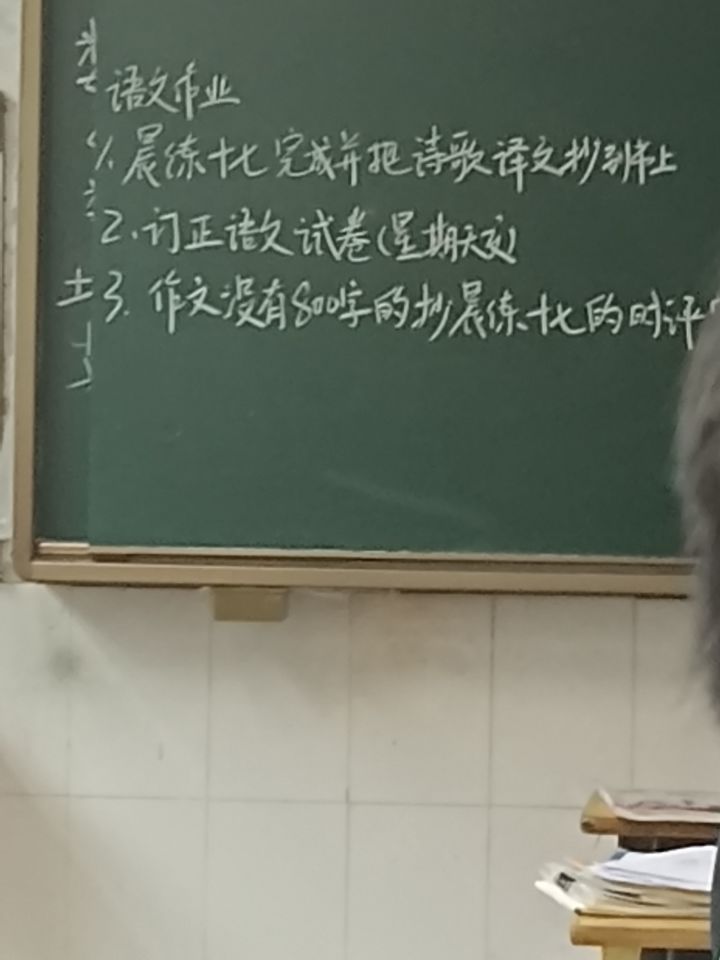 语文作业
1. 晨练十七完成并把诗歌译文抄到书上
2. 订正语文试卷(星期天交)
3. 作文没有800字的抄晨练十七的时评